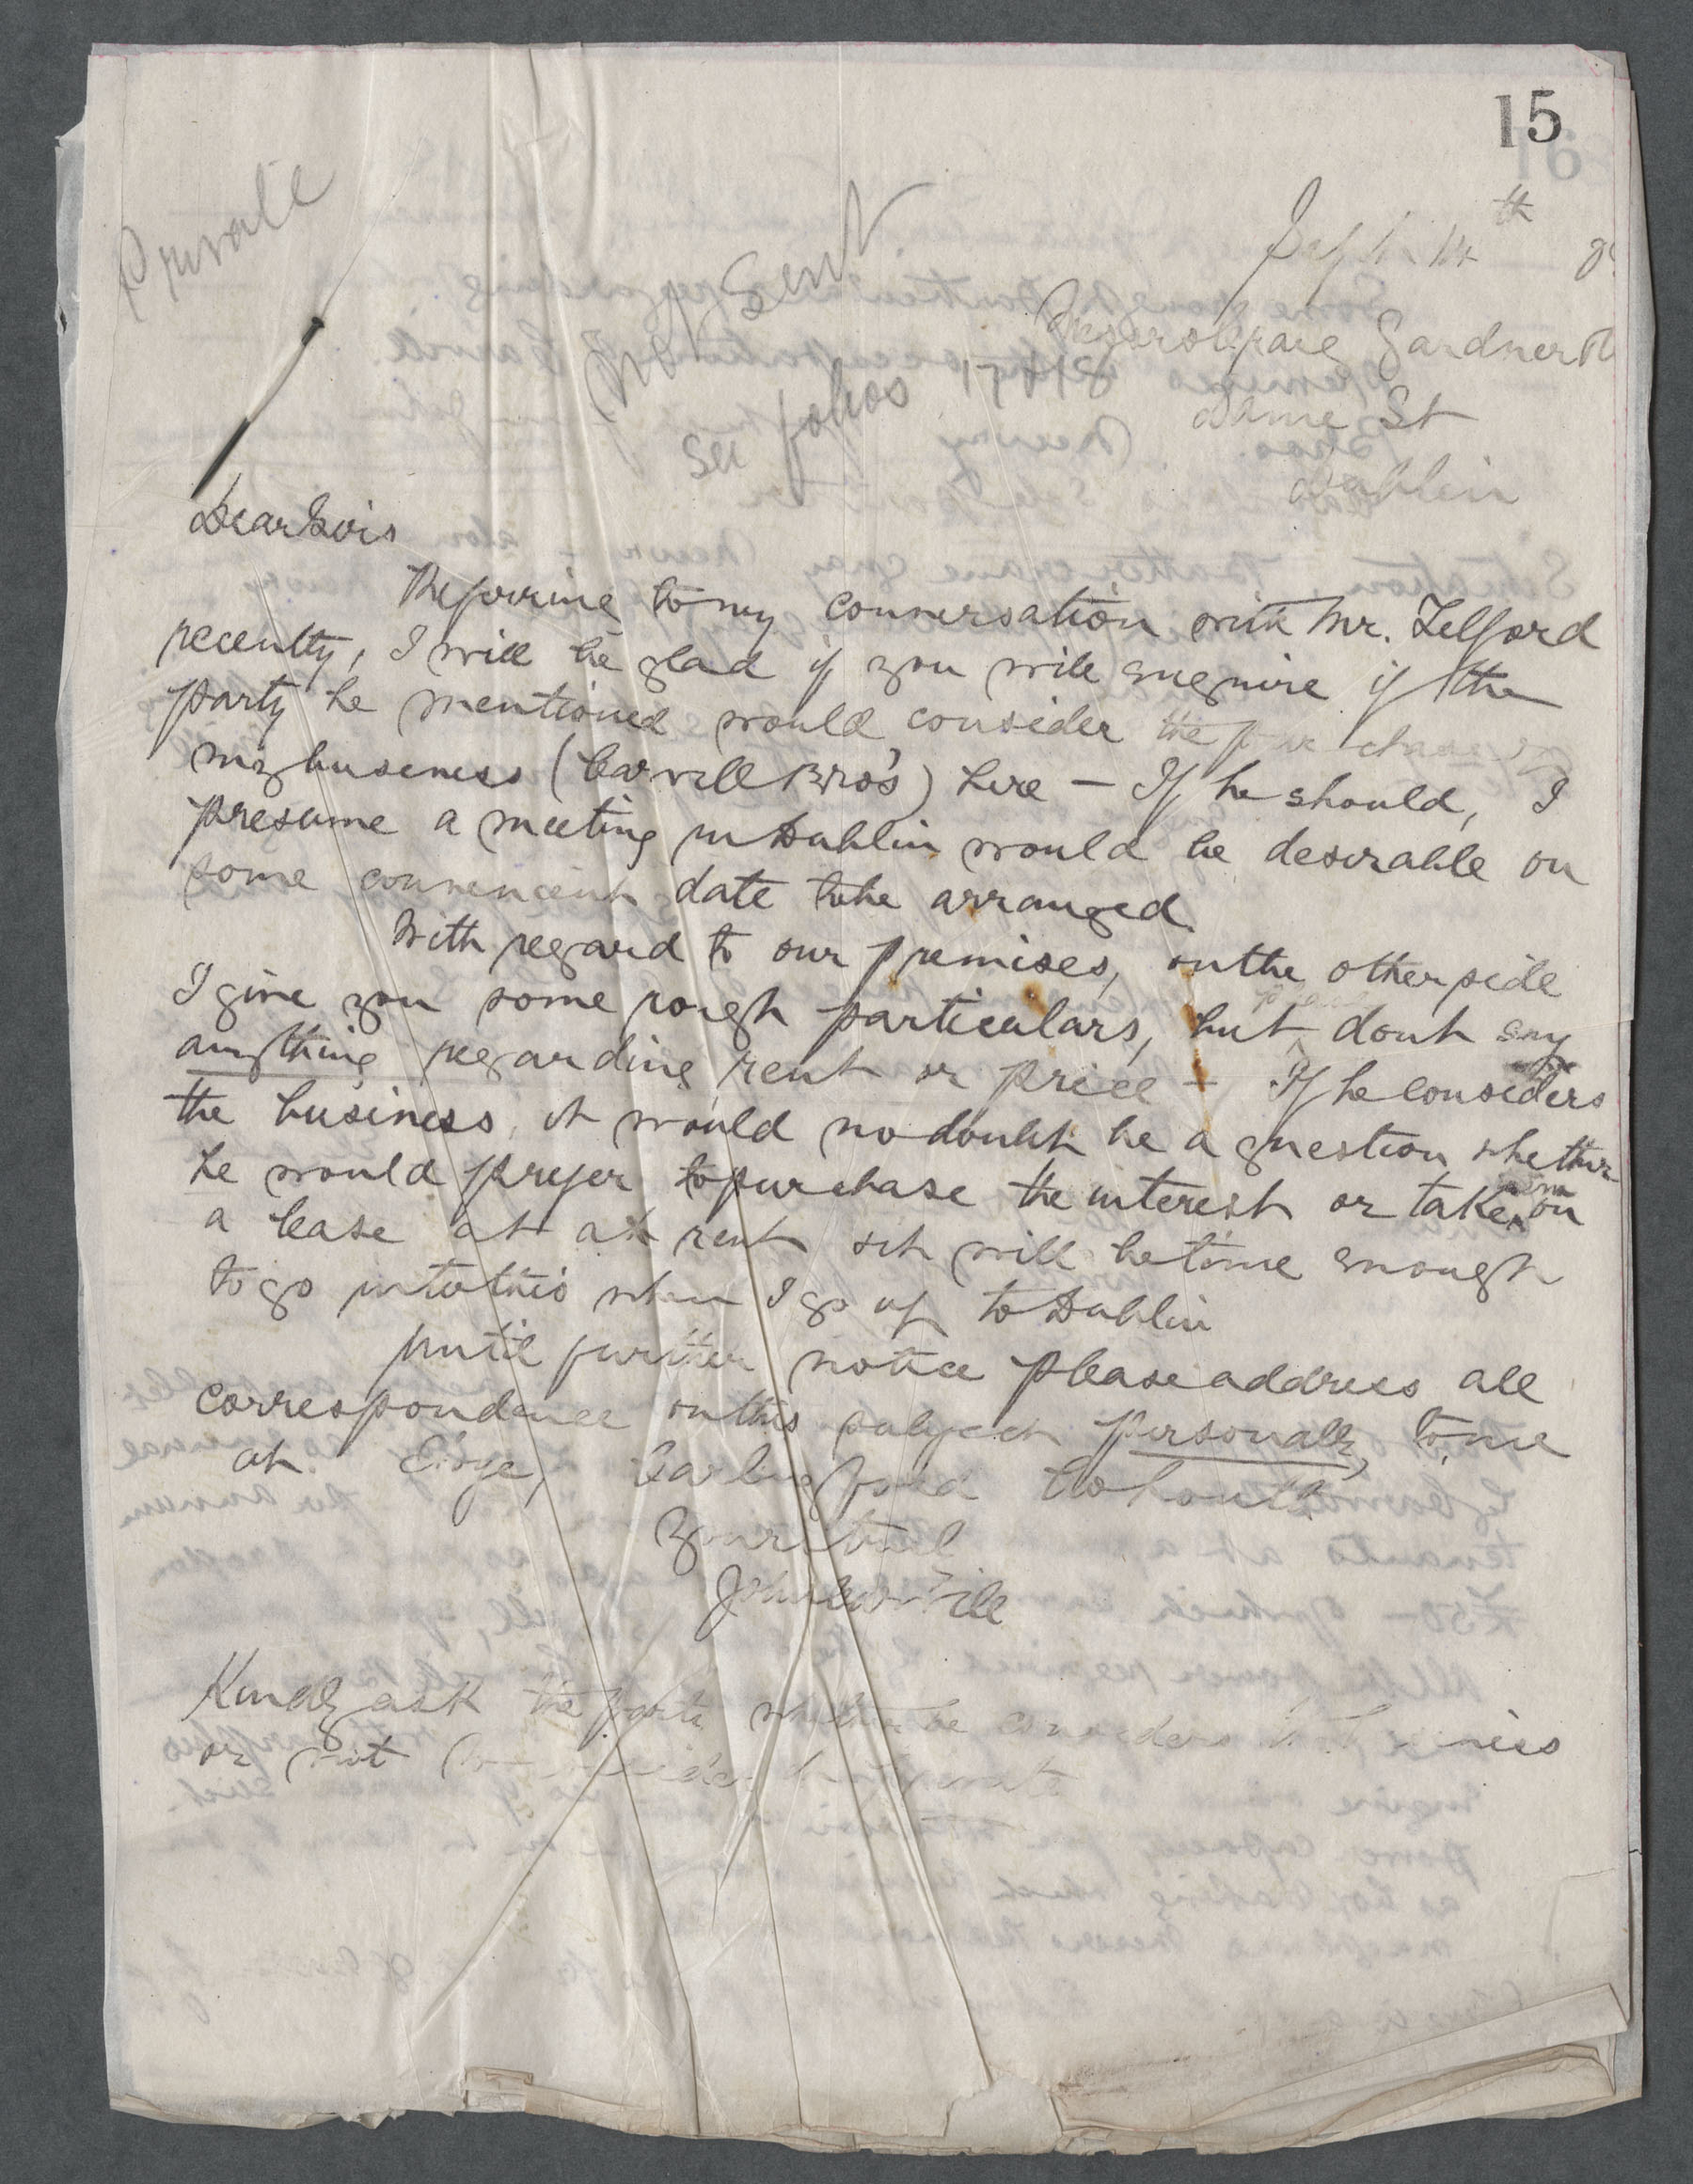 15
Private
Sept 14th
Not Sent
Messrs Craig Gardner &
see folios 17 & 18
Dame St
Dublin
Dear Sirs
Referring to my conversation with Mr. Telford
recently, I will be glad if you will enquire if the
party he mentioned would consider the purchase of
my business (Carvill Bro's) here — If he should, I
presume a meeting in Dublin would be desirable on
some convenient date to be arranged.
With regard to our premises, on the other side
I give you some rough particulars, but please dont say
anything regarding rent or price — If he considers
the business, it would no doubt be a question whether
he would prefer to purchase the interest or take on
a lease at a rent it will be time enough
to go into this when I go up to Dublin
Until further notice please address all
correspondence on this subject personally to me
at Carlingford Co Louth
Yours truly
John Carvill
Kindly ask the party whether he considers the business
or not